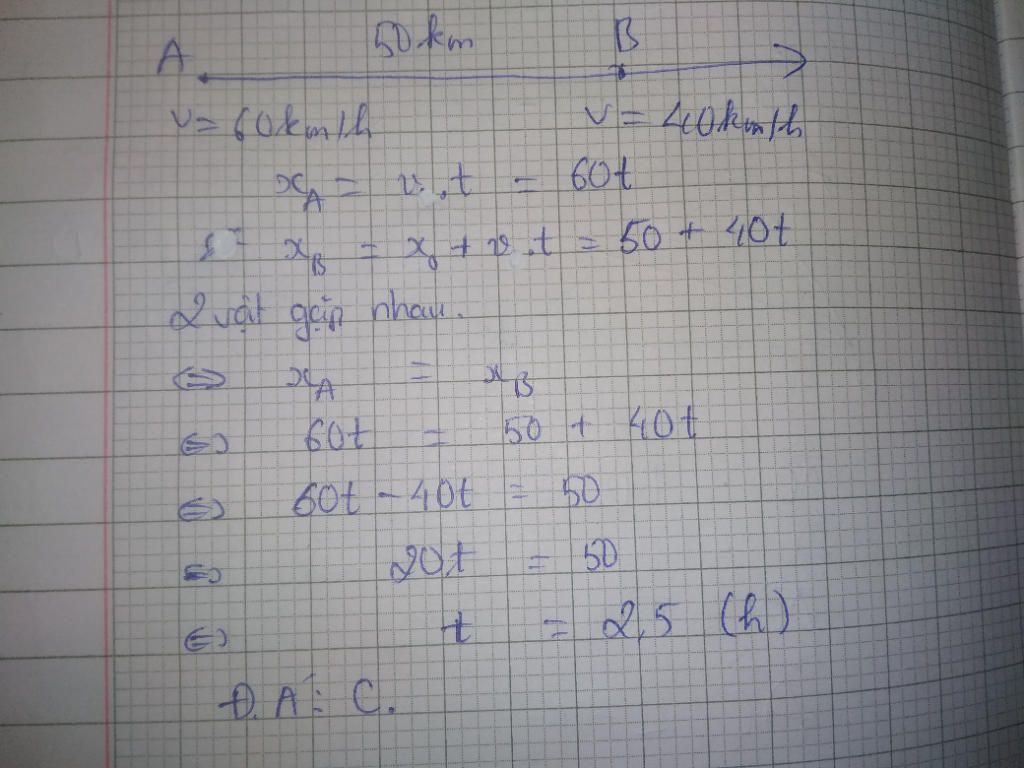 A 50km B
v = 60km/h v = 40km/h
x_A = v.t = 60t
x_B = x_0 + v.t = 50 + 40t
2 vật gặp nhau.
⇔ x_A = x_B
⇔ 60t = 50 + 40t
⇔ 60t - 40t = 50
⇔ 20t = 50
⇔ t = 2,5 (h)
Đ.A: C.